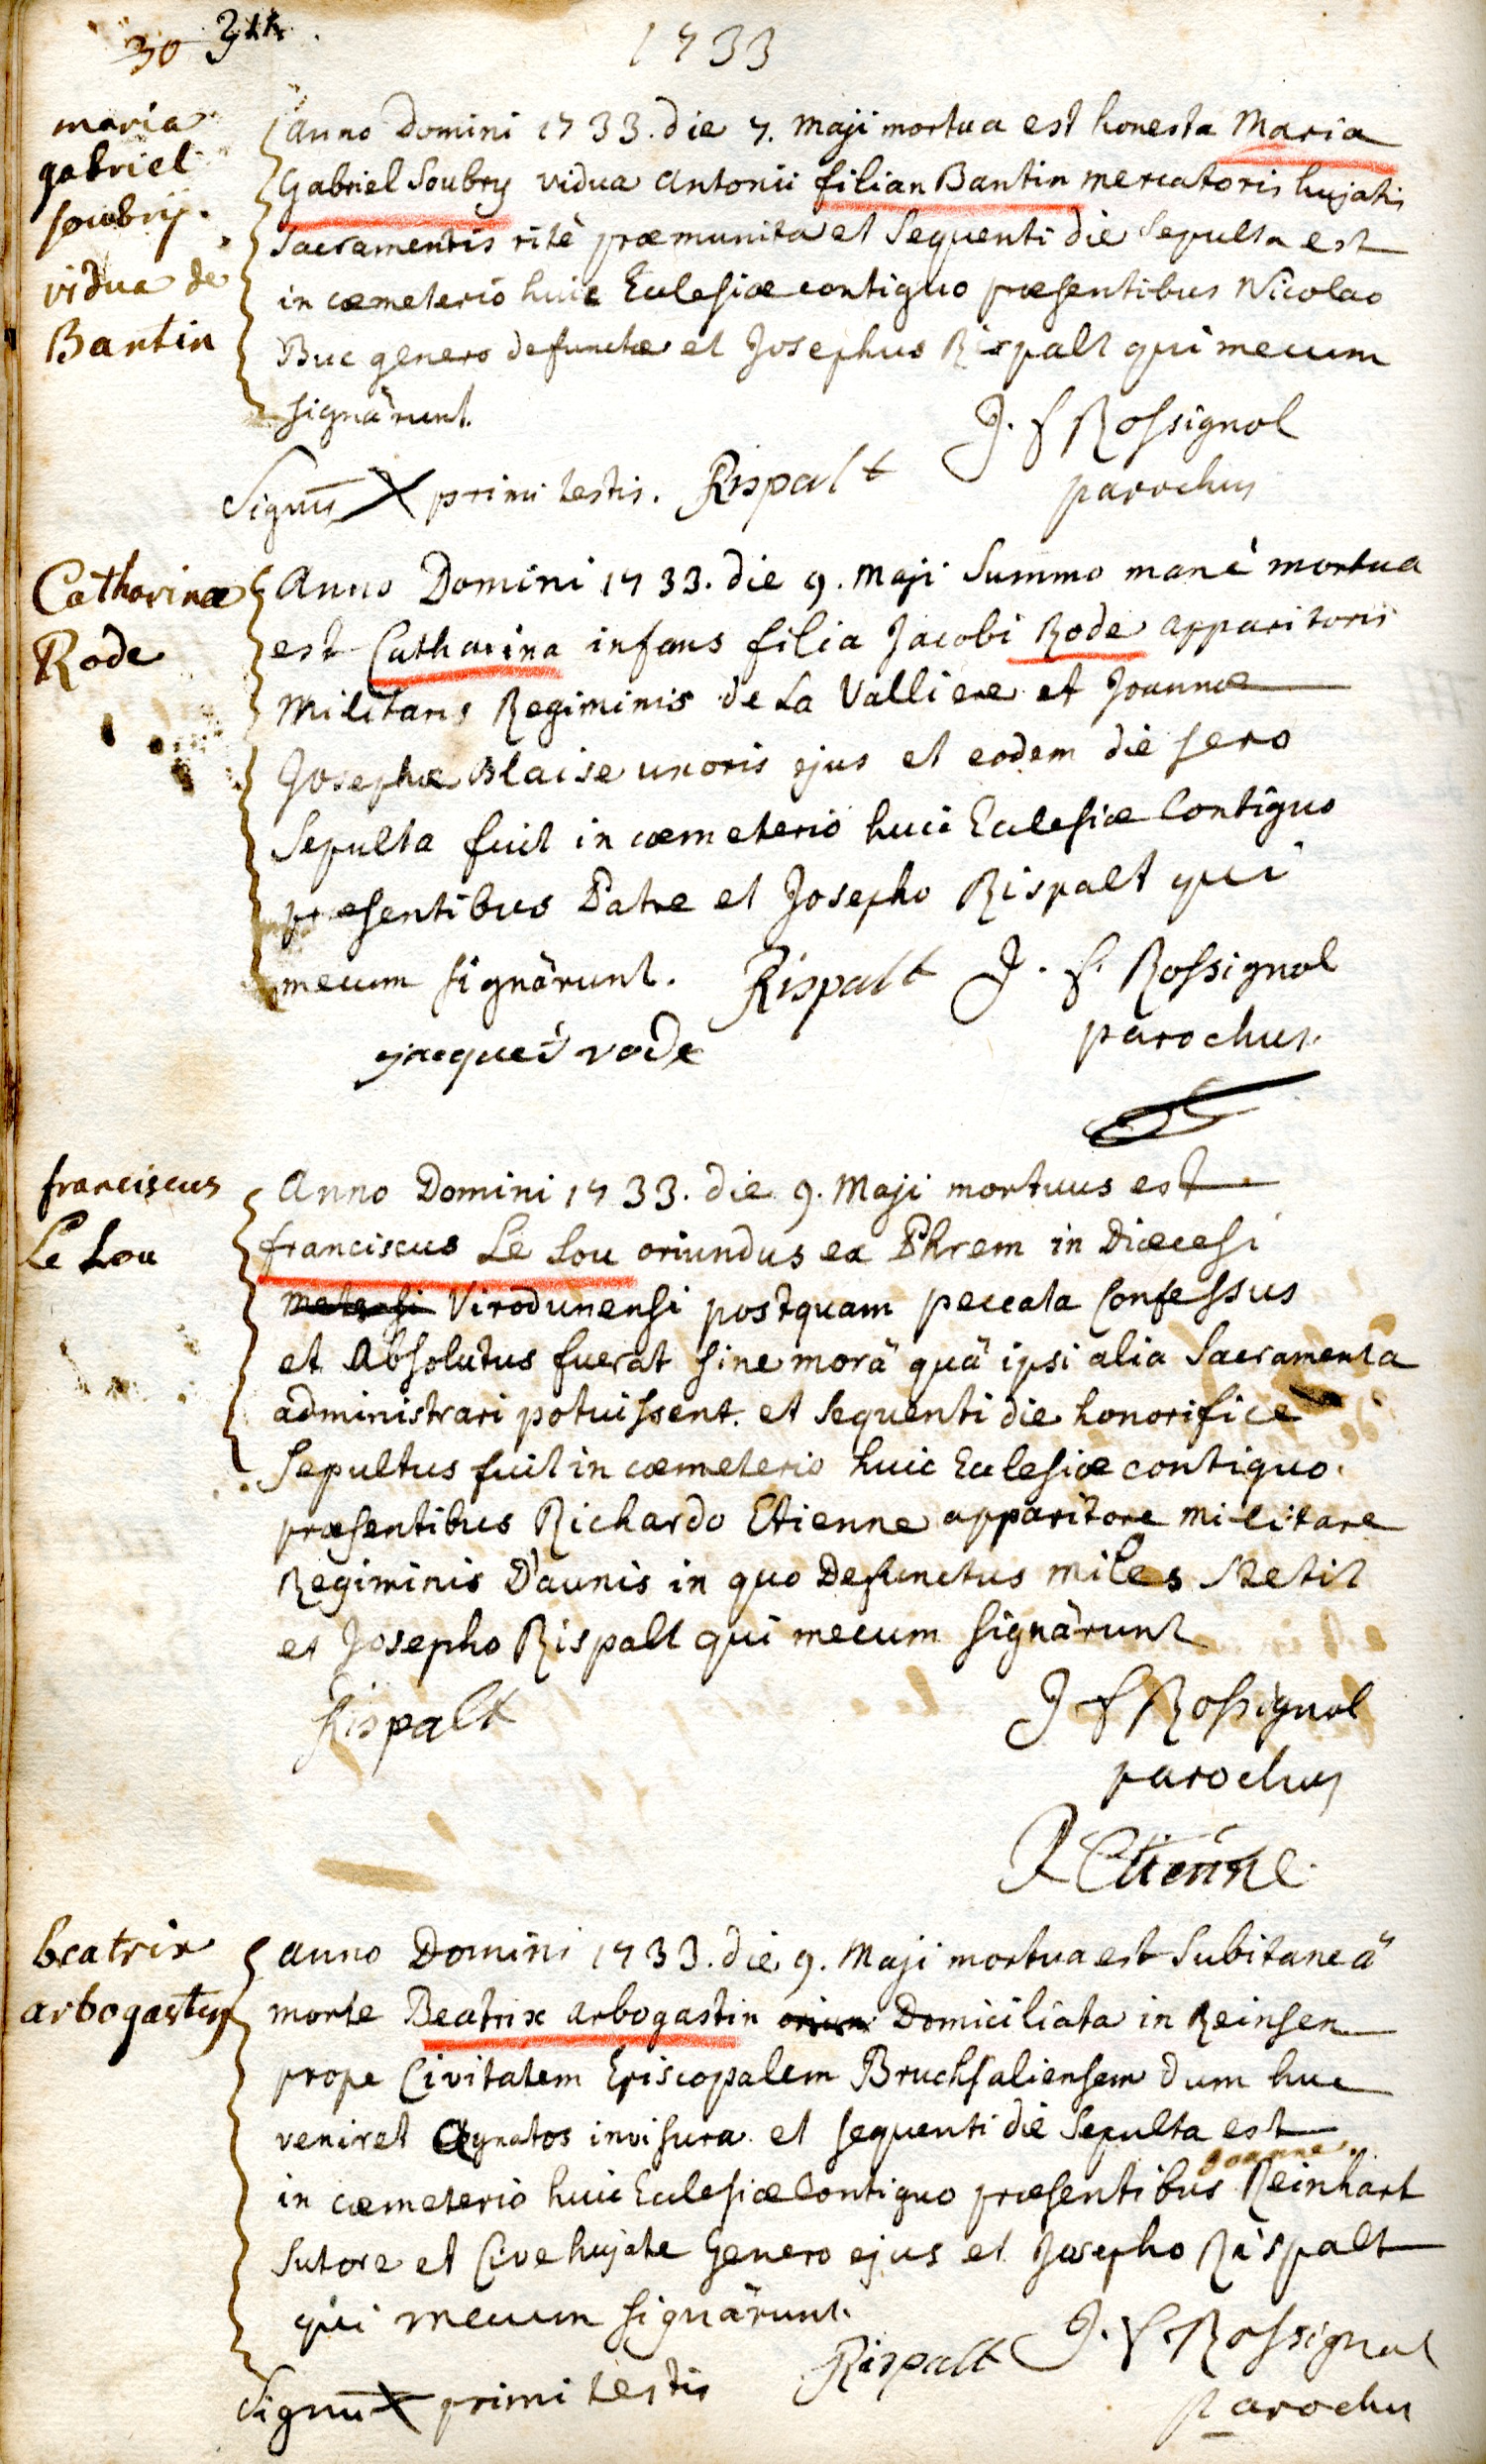 30
1733
maria
gabriel
soubrÿ.
vidua de
Bantin
Anno Domini 1733. die 7. Maji mortua est honesta Maria
Gabriel Soubry vidua Antonii filian Bantin mercatoris hujatis
Sacramentis ritè præmunita et Sequenti die Sepulta est
in cæmeterio huic Eclesiæ contiguo præsentibus Nicolao
Buc genero defunctæ et Josephus Rispalt qui mecum
signärunt.
J. f Rossignol
parochus
Signũ X primi testis. Rispalt
Catharinæ
Rode
Anno Domini 1733. die 9. Maji Summo manè mortua
est Catharina infans filia Jacobi Rode apparitoris
Militaris Regiminis de La Valliere et Joannæ
Josephæ Blaise uxoris ejus et eodem die sero
Sepulta fuit in cæmeterio huic Eclesiæ Contiguo
præsentibus Patre et Josepho Rispalt qui
mecum signärunt. Rispalt J. f. Rossignol
jacques rode parochus.
franciscus
Le Lou
Anno Domini 1733. die 9. Maji mortuus est
franciscus Le Lou oriundus ex Phrem in Diæcesi
metensi Virodunensi postquam peccata Confessus
et Absolutus fuerat sine morä quä ipsi alia Sacramenta
administrari potuissent. et Sequenti die honorifice
Sepultus fuit in cæmeterio huic Eclesiæ contiguo.
præsentibus Richardo Etienne apparitore militare
Regiminis D'aunis in quo Defunctus miles Stetit
et Josepho Rispalt qui mecum signärunt
Rispalt J f Rossignol
parochus
R Etienne
beatrix
arbogastin
Anno Domini 1733. die 9. Maji mortua est Subitaneä
morte Beatrix arbogastin oriun Domiciliata in Reinsen
prope Civitatem Episcopalem Bruchsaliensem dum huc
veniret Agnatos invisura et sequenti die Sepulta est
Joanne
in cæmeterio huic Eclesiæ Contiguo præsentibus Reinhart
Sutore et Cive hujate Genero ejus et Josepho Rispalt
qui mecum signärunt.
Rispalt J. f. Rossignol
Signũ X primi testis parochus